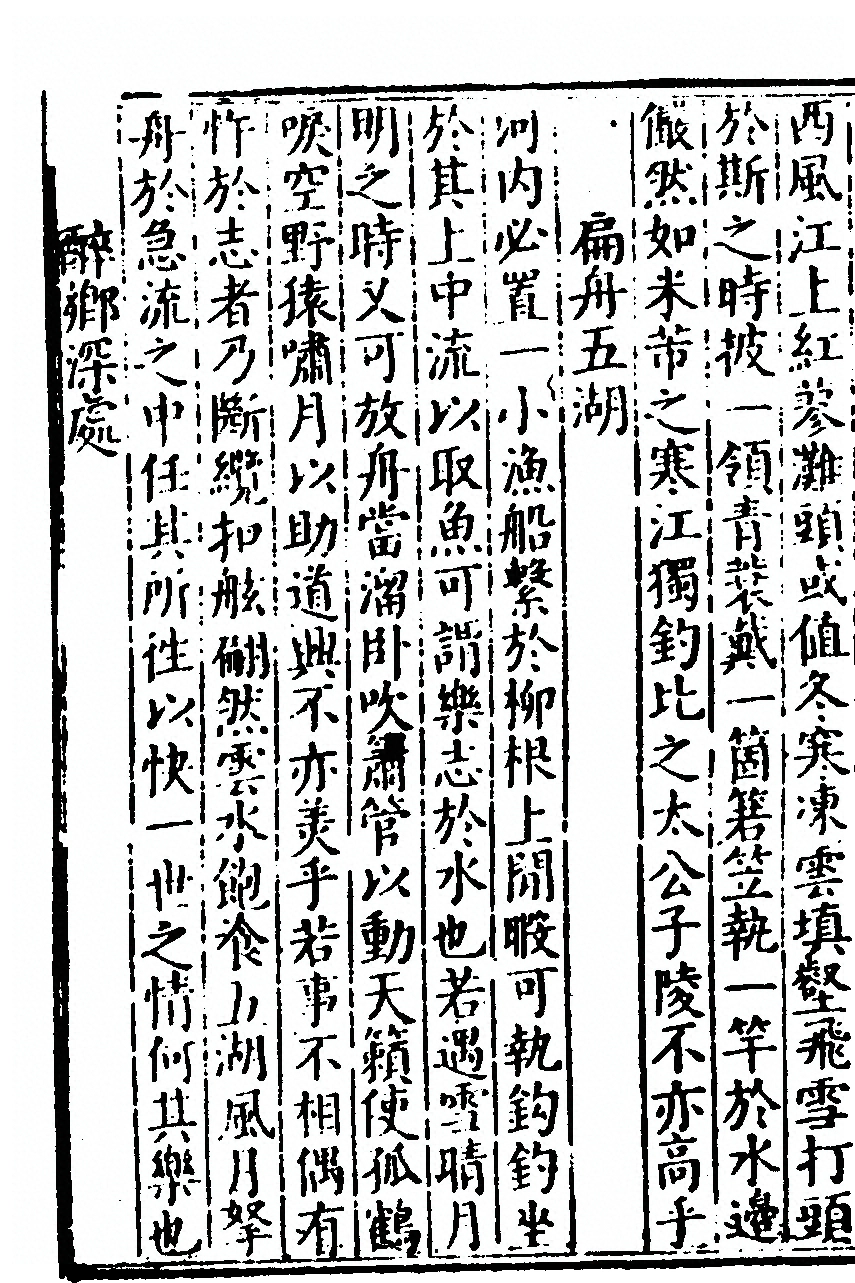 西風江上紅蓼灘頭或值冬寒凍雲填壑飛雪打頭
於斯之時披一領青蓑戴一箇篛笠執一竿於水邊
儼然如米芾之寒江獨釣比之太公子陵不亦高乎
扁舟五湖
河內必置一小漁船繫於柳根上閒暇可執鈎釣坐
於其上中流以取魚可謂樂志於水也若遇雪晴月
明之時又可放舟當溜卧吹簫管以動天籟使孤鶴
唳空野猿嘯月以助道興不亦羙乎若事不相偶有
忤於志者乃斷纜扣舷翩然雲水飽飡五湖風月拏
舟於急流之中任其所往以快一世之情何其樂也
醉鄉深處